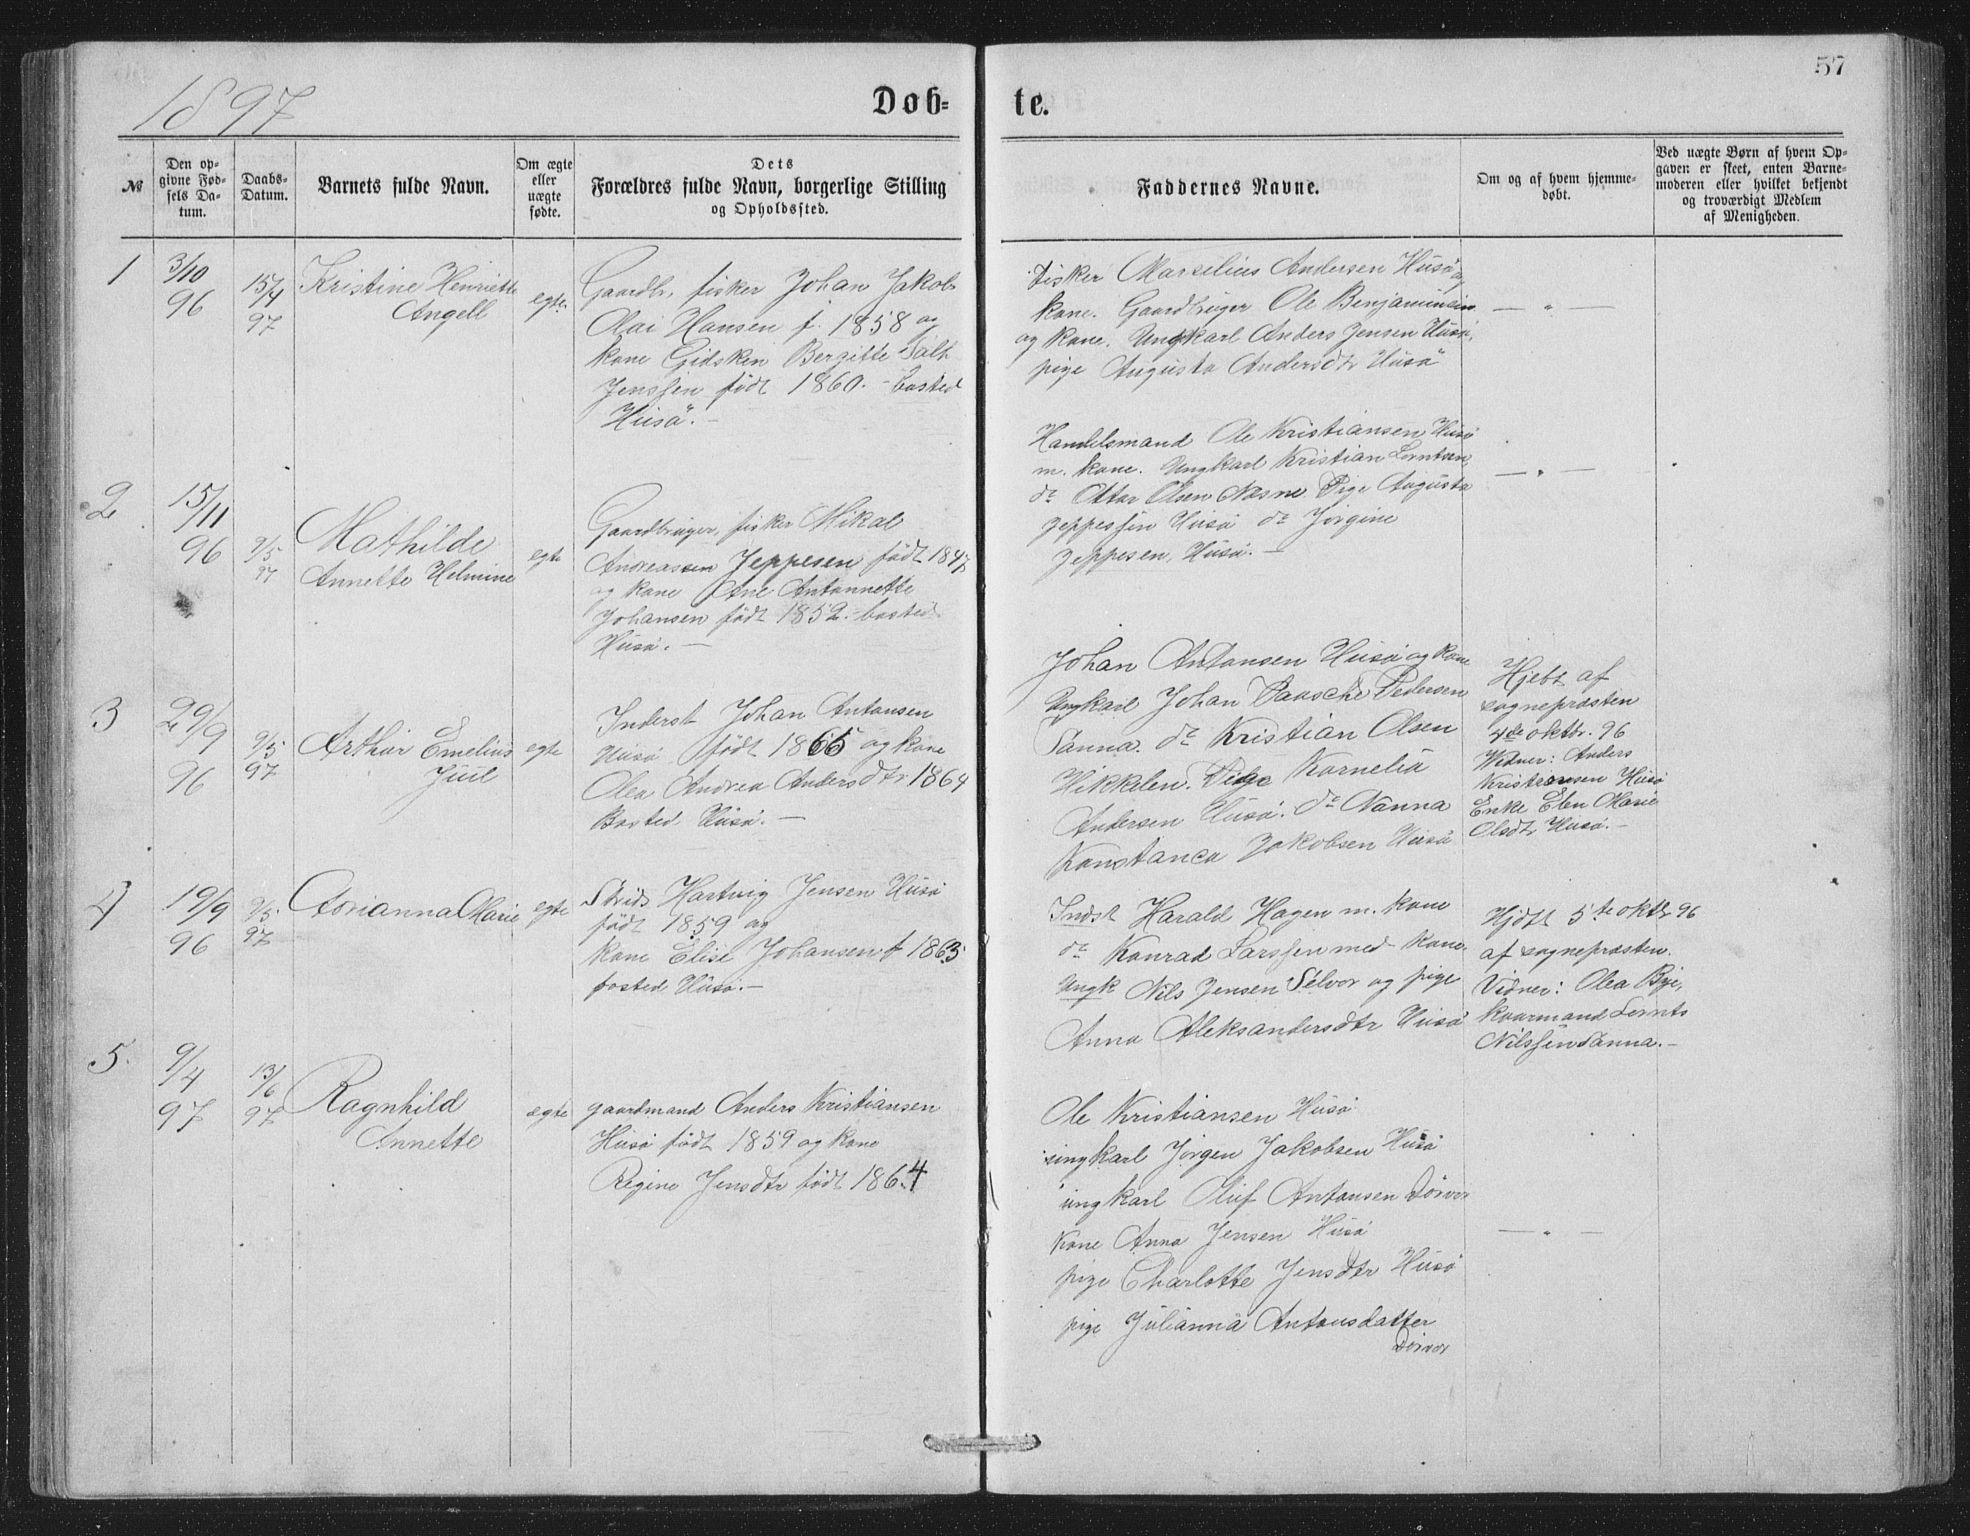 1897
Døb=
te.
57
№
Den op=
givne Fød=
sels Da=
tum.
Daabs=
Datum.
Barnets fulde Navn.
Om ægte
eller
uægte
fødte.
Dets
Forældres fulde Navn, borgerlige Stilling
og Opholdssted.
Faddernes Navne.
Om og af hvem hjemme=
døbt.
Ved uægte Børn af hvem Op=
gaven er skeet, enten Barne=
moderen eller hvilket bekjendt
og troværdigt Medlem
af Menigheden.
1
3/10
96
15/4
97
Kristine Henriette
Angell
egte.
Gaardbr, fisker Johan Jakob
Olai Hansen f. 1858 og
kone Gidsken Bergitte
Jenssen født 1860. - bosted
Husø. -
Fisker Marselius Andersen Husø og
kone. Gaardbruger Ole Benjaminsen
og kone. Ungkarl Anders Jensen Husø,
pige Augusta Andersdtr Husø
— " —
2
15/11
96
9/5
97
Mathilde
Annette Helmine
egte
Gaardbruger, fisker Mikal
Andreassen Jeppesen født 1847
og kone Ane Antonnette
Johansen født 1852. - bosted
Husø. —
Handelsmand Ole Kristiansen Husø
m. kone. Ungkarl Kristian Lorntsen,
do Ottar Olsen Næsne Pige Augusta
Jeppessen Husø do Jørgine
Jeppesen, Husø. —
— " —
3
29/9
96
9/5
97
Arthur Emelius
Juul
egte
Inderst Johan Antonsen
Husø født 1865 og kone
Olea Andrea Andersdtr 1864
Bosted Husø. —
Johan Antonsen Husø og kone
Ungkarl Johan Paasche Pedersen
Sanna. do Kristian Olsen
Hikkelen. Pige Kornelia
Andersen Husø. do Nanna
Konstance Jakobsen Husø
Hjebt af
sognepræsten
4de oktbr. 96
Vidner: Anders
Kristiansen Husø
Enke Elen Marie
Olsdtr Husø. —
4
19/9
96
9/5
97
Adrianna Marie
egte
Hartvig Jensen Husø
født 1859 og
kone Elise Johansen f 1863
bosted Husø. —
Indst Harald Hagen m. kone
do Konrad Larssen med kone.
Ungk Nils Jensen Selvor og pige
Anna Aleksandersdtr Husø
Hjdft 5te oktbr 96
af sognepræsten.
Vidner: Olea Bye,
kaarmand Lornts
Nilssen Sanna. —
5.
9/4
97
13/6
97
Ragnhild
Annette
ægte
gaardmand Anders Kristiansen
Husø født 1859 og kone
Regine Jensdtr født 1864
Ole Kristiansen Husø
ungkarl Jørgen Jakobsen Husø
ungkarl Oluf Antonsen Dørvor
kone Anna Jensen Husø
pige Charlotte Jensdtr Husø
pige Julianna Antonsdatter
Dørvor
— " —